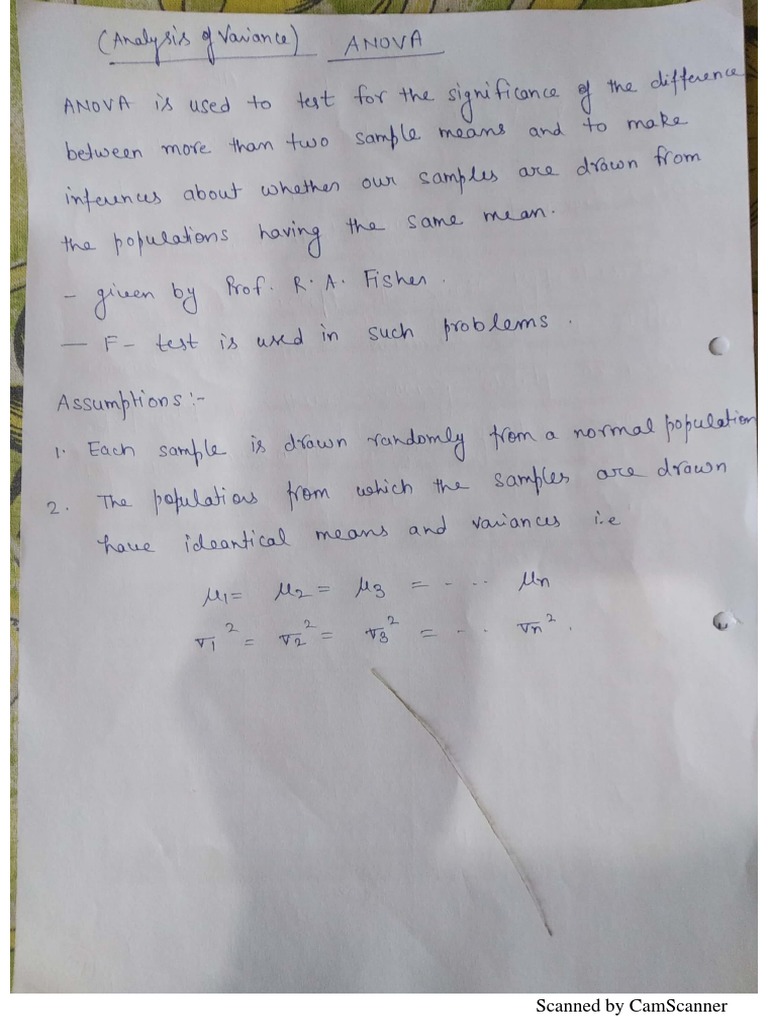 (Analysis of Variance) ANOVA
ANOVA is used to test for the significance of the difference
between more than two sample means and to make
inferences about whether our samples are drawn from
the populations having the same mean.
- given by Prof. R. A. Fisher.
- F- test is used in such problems.
Assumptions :-
1. Each sample is drawn randomly from a normal population
2. The populations from which the samples are drawn
have ideantical means and variances i.e
μ1 = μ2 = μ3 = - .. μn
σ1² = σ2² = σ3² = - .. σn².
Scanned by CamScanner